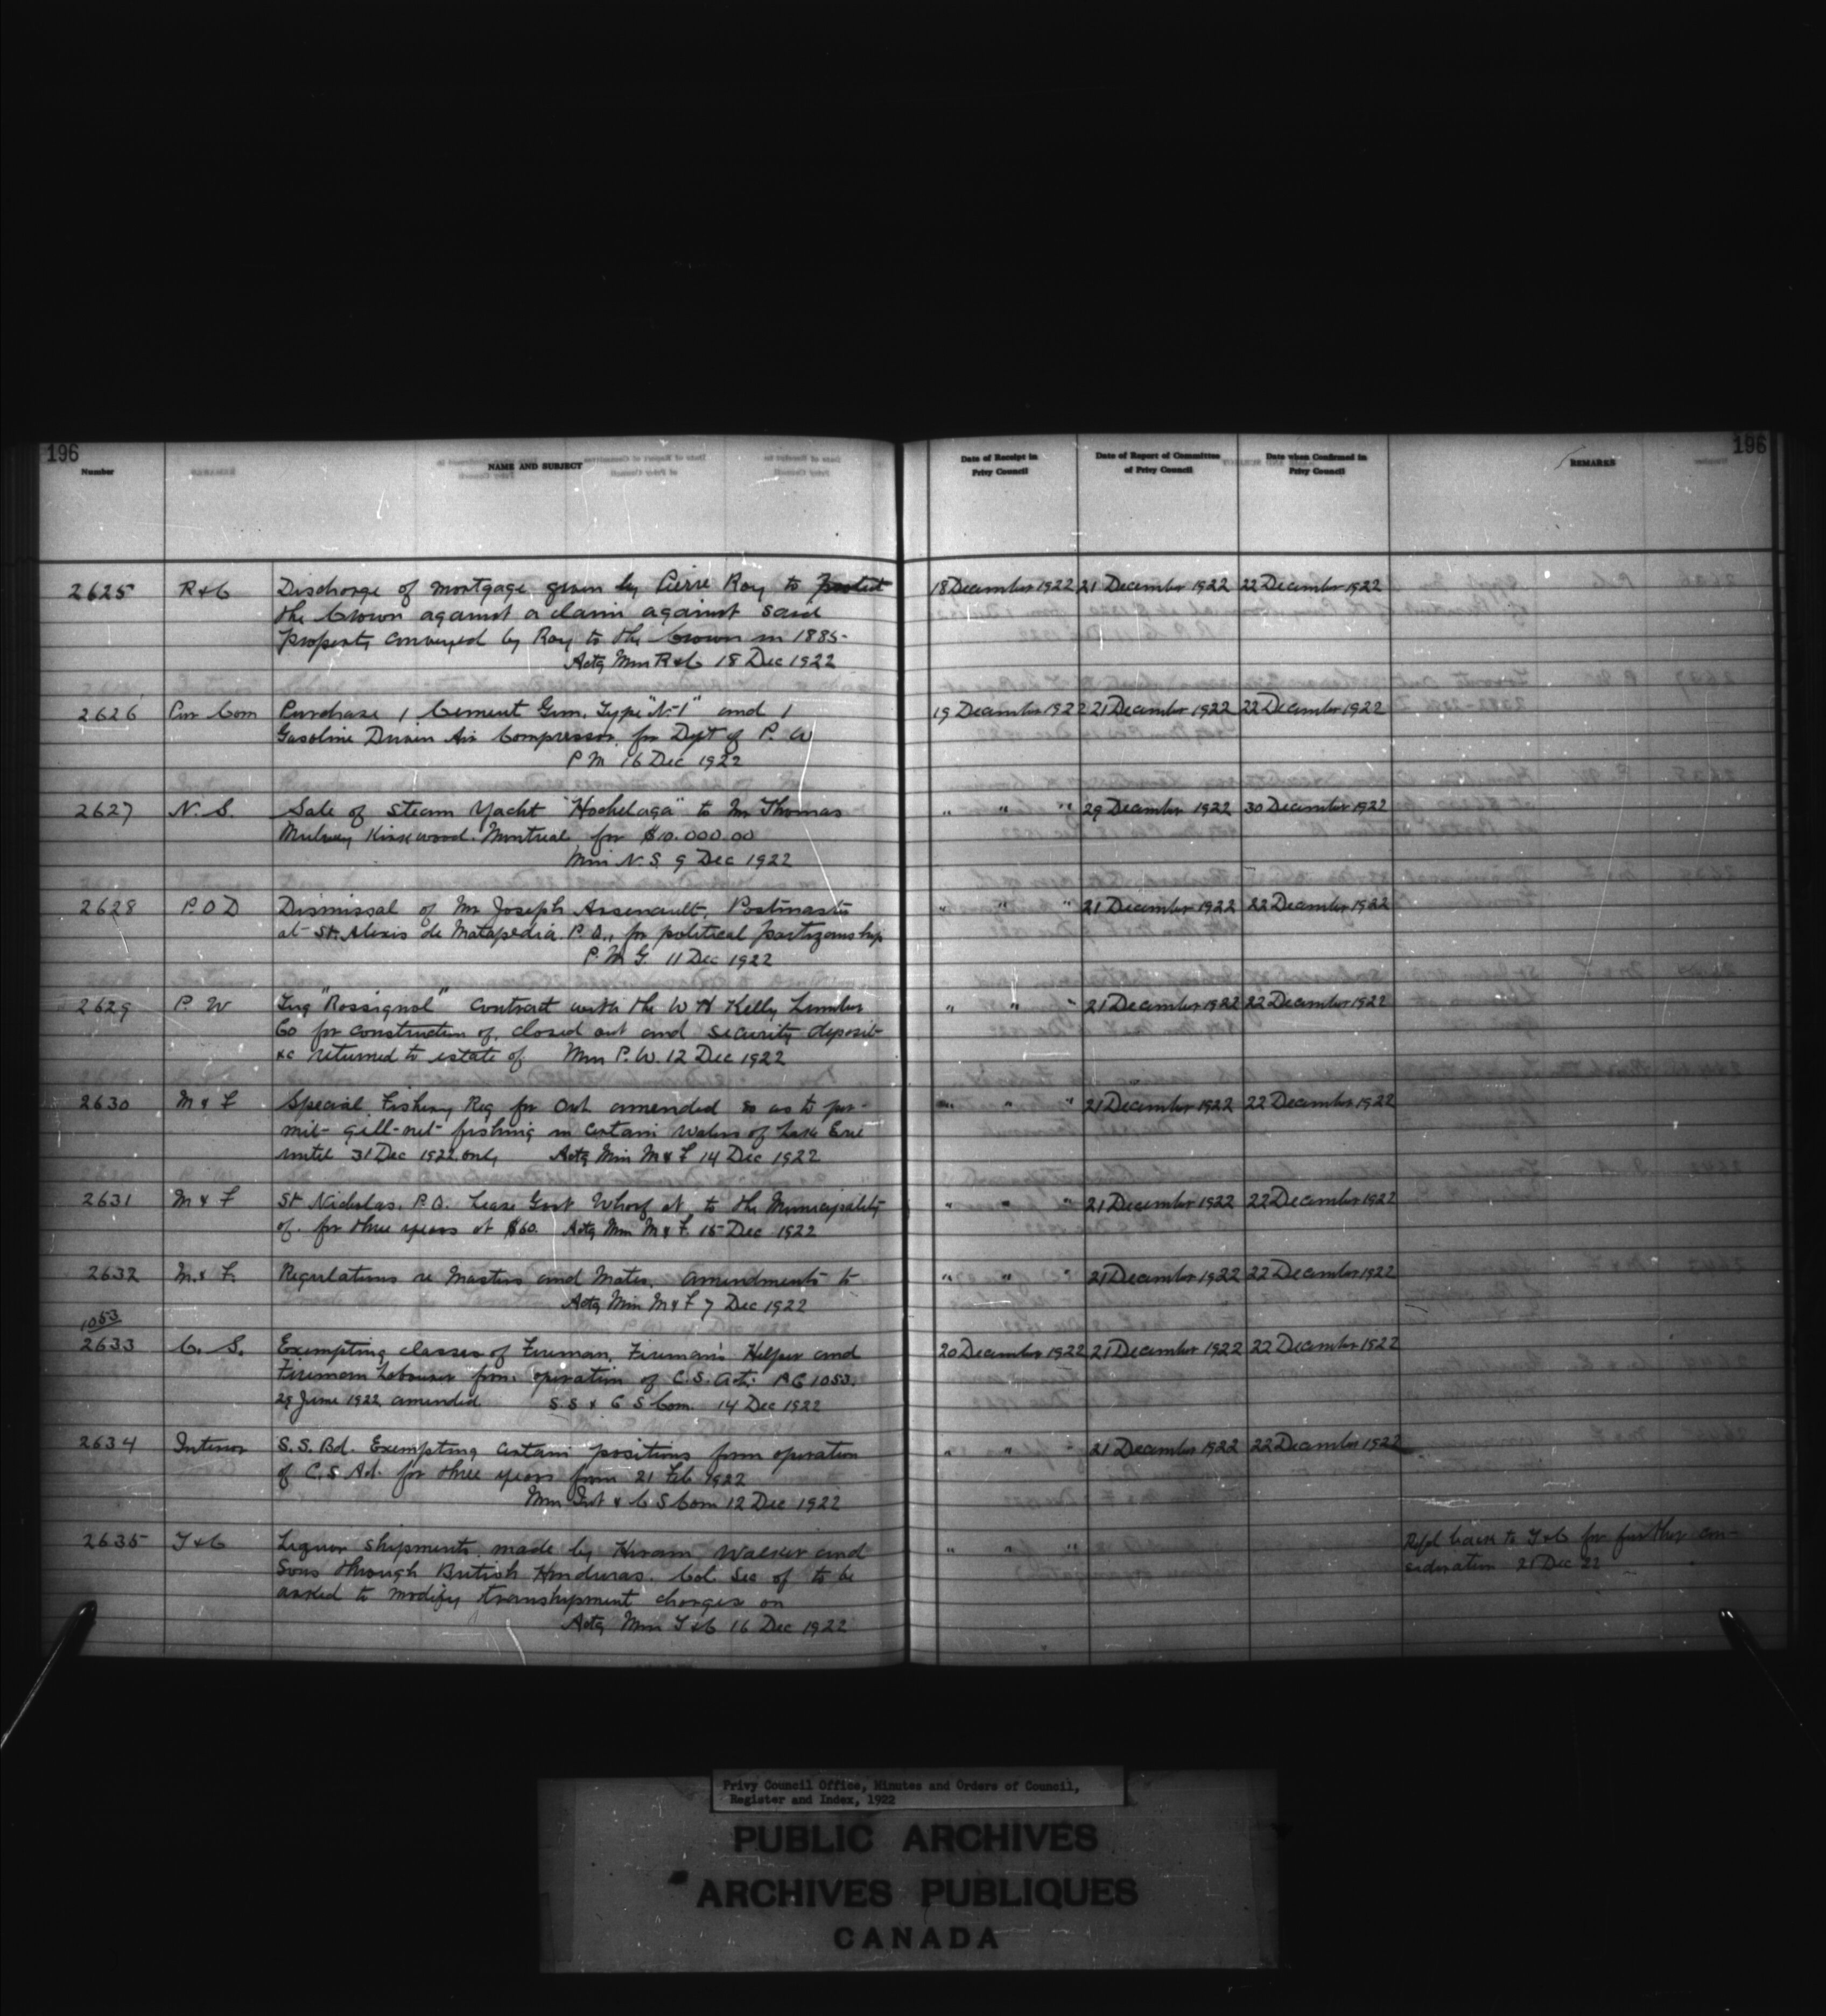 196
196
Number
NAME AND SUBJECT
Date of Receipt in Privy Council
Date of Report of Committee of Privy Council
Date when Confirmed in Privy Council
REMARKS
2625 R & C Discharge of mortgage given by Pierre Roy to protect 18 December 1922 21 December 1922 22 December 1922
the Crown against a claim against said
property conveyed by Roy to the Crown in 1885-
Actg Min R & C 18 Dec 1922
2626 Pur Com Purchase 1 Cement Gun, Type "N-1" and 1 19 December 1922 21 December 1922 22 December 1922
Gasoline Driven Air Compressor for Dept of P. W
P M 16 Dec 1922
2627 N. S. Sale of Steam Yacht "Hochelaga" to Mr Thomas " " " 29 December 1922 30 December 1922
Kirkwood. Montreal, for $10.000.00
Min N. S. 9 Dec 1922
2628 P. O D Dismissal of Mr Joseph Arsenault, Postmaster " " " 21 December 1922 22 December 1922
at St. Alexis de Matapedia P. Q., for political partizanship
P. M G. 11 Dec 1922
2629 P. W Tug "Rossignol" contract with the W H Kelly Lumber " " " 21 December 1922 22 December 1922
Co for construction of, closed out and security deposit
&c returned to estate of Min P. W. 12 Dec 1922
2630 M & F Special Fishery Reg for Ont amended so as to per- " " " 21 December 1922 22 December 1922
mit gill-net fishing in certain waters of Lake Erie
until 31 Dec 1922 only Actg Min M & F 14 Dec 1922
2631 M & F St Nicholas, P. Q. Lease Govt Wharf at to the Municipality " " " 21 December 1922 22 December 1922
of. for three years at $60. Actg Min M & F. 15 Dec 1922
2632 M. & F. Regulations re Masters and Mates, amendments to " " " 21 December 1922 22 December 1922
Actg Min M & F 7 Dec 1922
1053
2633 C. S. Exempting classes of Fireman, Fireman's Helper and 20 December 1922 21 December 1922 22 December 1922
Fireman Labourer from operation of C. S. Act. PC 1053.
29 June 1922 amended S. S & C S Com. 14 Dec 1922
2634 Interior S. S. Bd. Exempting certain positions from operation " " " 21 December 1922 22 December 1922
of C. S Act. for three years from 21 Feb 1922
Min Int & C S Com 12 Dec 1922
2635 T & C Liquor shipments made by Hiram Walker and " " " Refd back to T & C for further con-
Sons through British Honduras. Col. Sec of to be sideration 21 Dec 22
asked to modify transhipment charges on
Actg Min T & C 16 Dec 1922
Privy Council Office, Minutes and Orders of Council,
Register and Index, 1922
PUBLIC ARCHIVES
ARCHIVES PUBLIQUES
CANADA